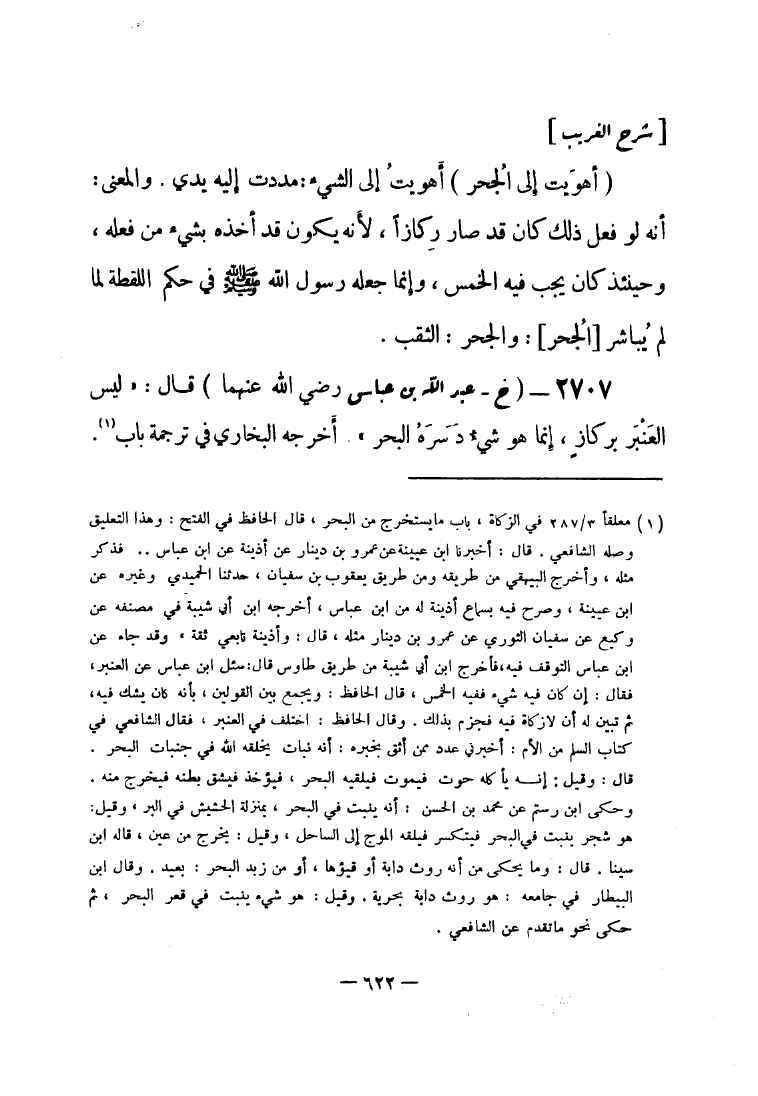 [ شرح الغريب ]
( أهوَيت إلى الجُحر ) أهويتُ إلى الشيء : مددت إليه يدي . والمعنى :
أنه لو فعل ذلك كان قد صار رِكازاً ، لأنه يكون قد أخذه بشيء من فعله ،
وحينئذ كان يجب فيه الخمس ، وإنما جعله رسول الله ﷺ في حكم اللقطة لما
لم يُباشر [الجُحر] : والجحر : الثقب .
٢٧٠٧ – ( خ - عبد الله بن عباس رضي الله عنهما ) قال : « ليس
العَنْبَر بركازٍ ، إنما هو شيءٌ دَسَرَهُ البحر » . أخرجه البخاري في ترجمة باب(١).
(١) معلقاً ٢٨٧/٣ في الزكاة ، باب مايستخرج من البحر ، قال الحافظ في الفتح : وهذا التعليق
وصله الشافعي . قال : أخبرنا ابن عيينة عن عمرو بن دينار عن أذينة عن ابن عباس .. فذكر
مثله ، وأخرج البيهقي من طريقه ومن طريق يعقوب بن سفيان ، حدثنا الحميدي وغيره عن
ابن عيينة ، وصرح فيه بسماع أذينة له من ابن عباس ، أخرجه ابن أبي شيبة في مصنفه عن
وكيع عن سفيان الثوري عن عمرو بن دينار مثله ، قال : وأذينة تابعي ثقة ، وقد جاء عن
ابن عباس التوقف فيه، فأخرج ابن أبي شيبة من طريق طاوس قال: سئل ابن عباس عن العنبر ،
فقال : إن كان فيه شيء ففيه الخمس ، قال الحافظ : ويجمع بين القولين ، بأنه كان يشك فيه،
ثم تبين له أن لازكاة فيه فجزم بذلك . وقال الحافظ : اختلف في العنبر ، فقال الشافعي في
كتاب السلم من الأم : أخبرني عدد ممن أثق بخبره : أنه نبات يخلقه الله في جنبات البحر .
قال : وقيل : إنه يأكله حوت فيموت فيلقيه البحر ، فيؤخذ فيشق بطنه فيخرج منه .
وحكى ابن رستم عن محمد بن الحسن : أنه ينبت في البحر ، بمنزلة الحشيش في البر ، وقيل:
هو شجر ينبت في البحر فيتكسر فيلقه الموج إلى الساحل ، وقيل : يخرج من عين ، قاله ابن
سينا . قال : وما يحكى من أنه روث دابة أو قيؤها ، أو من زبد البحر : بعيد . وقال ابن
البيطار في جامعه : هو روث دابة بحرية . وقيل : هو شيء ينبت في قعر البحر ، ثم
حكى نحو ماتقدم عن الشافعي .
– ٦٢٢ –